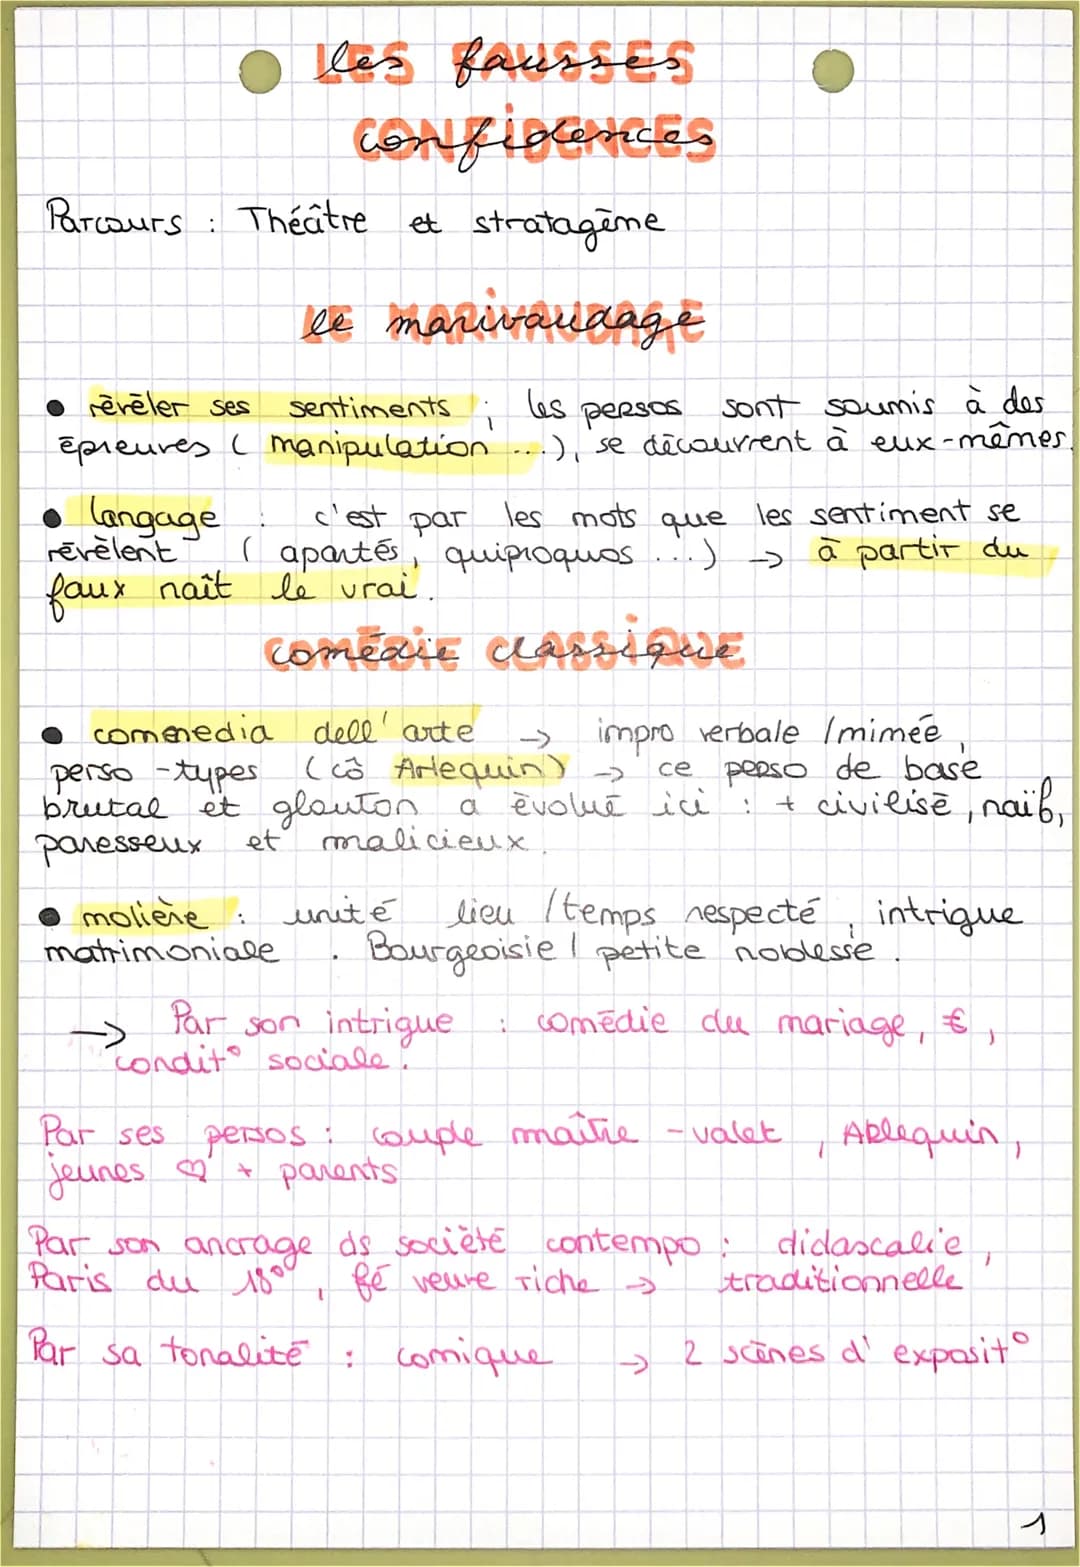 les fausses
confidences
Parcours : Théâtre et stratagème
le marivaudage
• révéler ses sentiments ; les persos sont soumis à des
épreuves ( manipulation ...), se découvrent à eux-mêmes.
• langage : c'est par les mots que les sentiment se
révèlent ( apartés, quiproquos ...) → à partir du
faux naît le vrai.
comédie classique
• commedia dell'arte → impro verbale / mimée,
perso-types (cô Arlequin) → ce perso de base
brutal et glouton a évolué ici : + civilisé, naïf,
paresseux et malicieux.
• molière : unité lieu / temps respecté, intrigue
matrimoniale. Bourgeoisie / petite noblesse.
→ Par son intrigue : comédie du mariage, €,
condit° sociale.
Par ses persos : couple maître-valet, Arlequin,
jeunes ♡ + parents
Par son ancrage ds société contempo : didascalie,
Paris du 18°, fé veuve riche → traditionnelle
Par sa tonalité : comique → 2 scènes d'exposit°
1